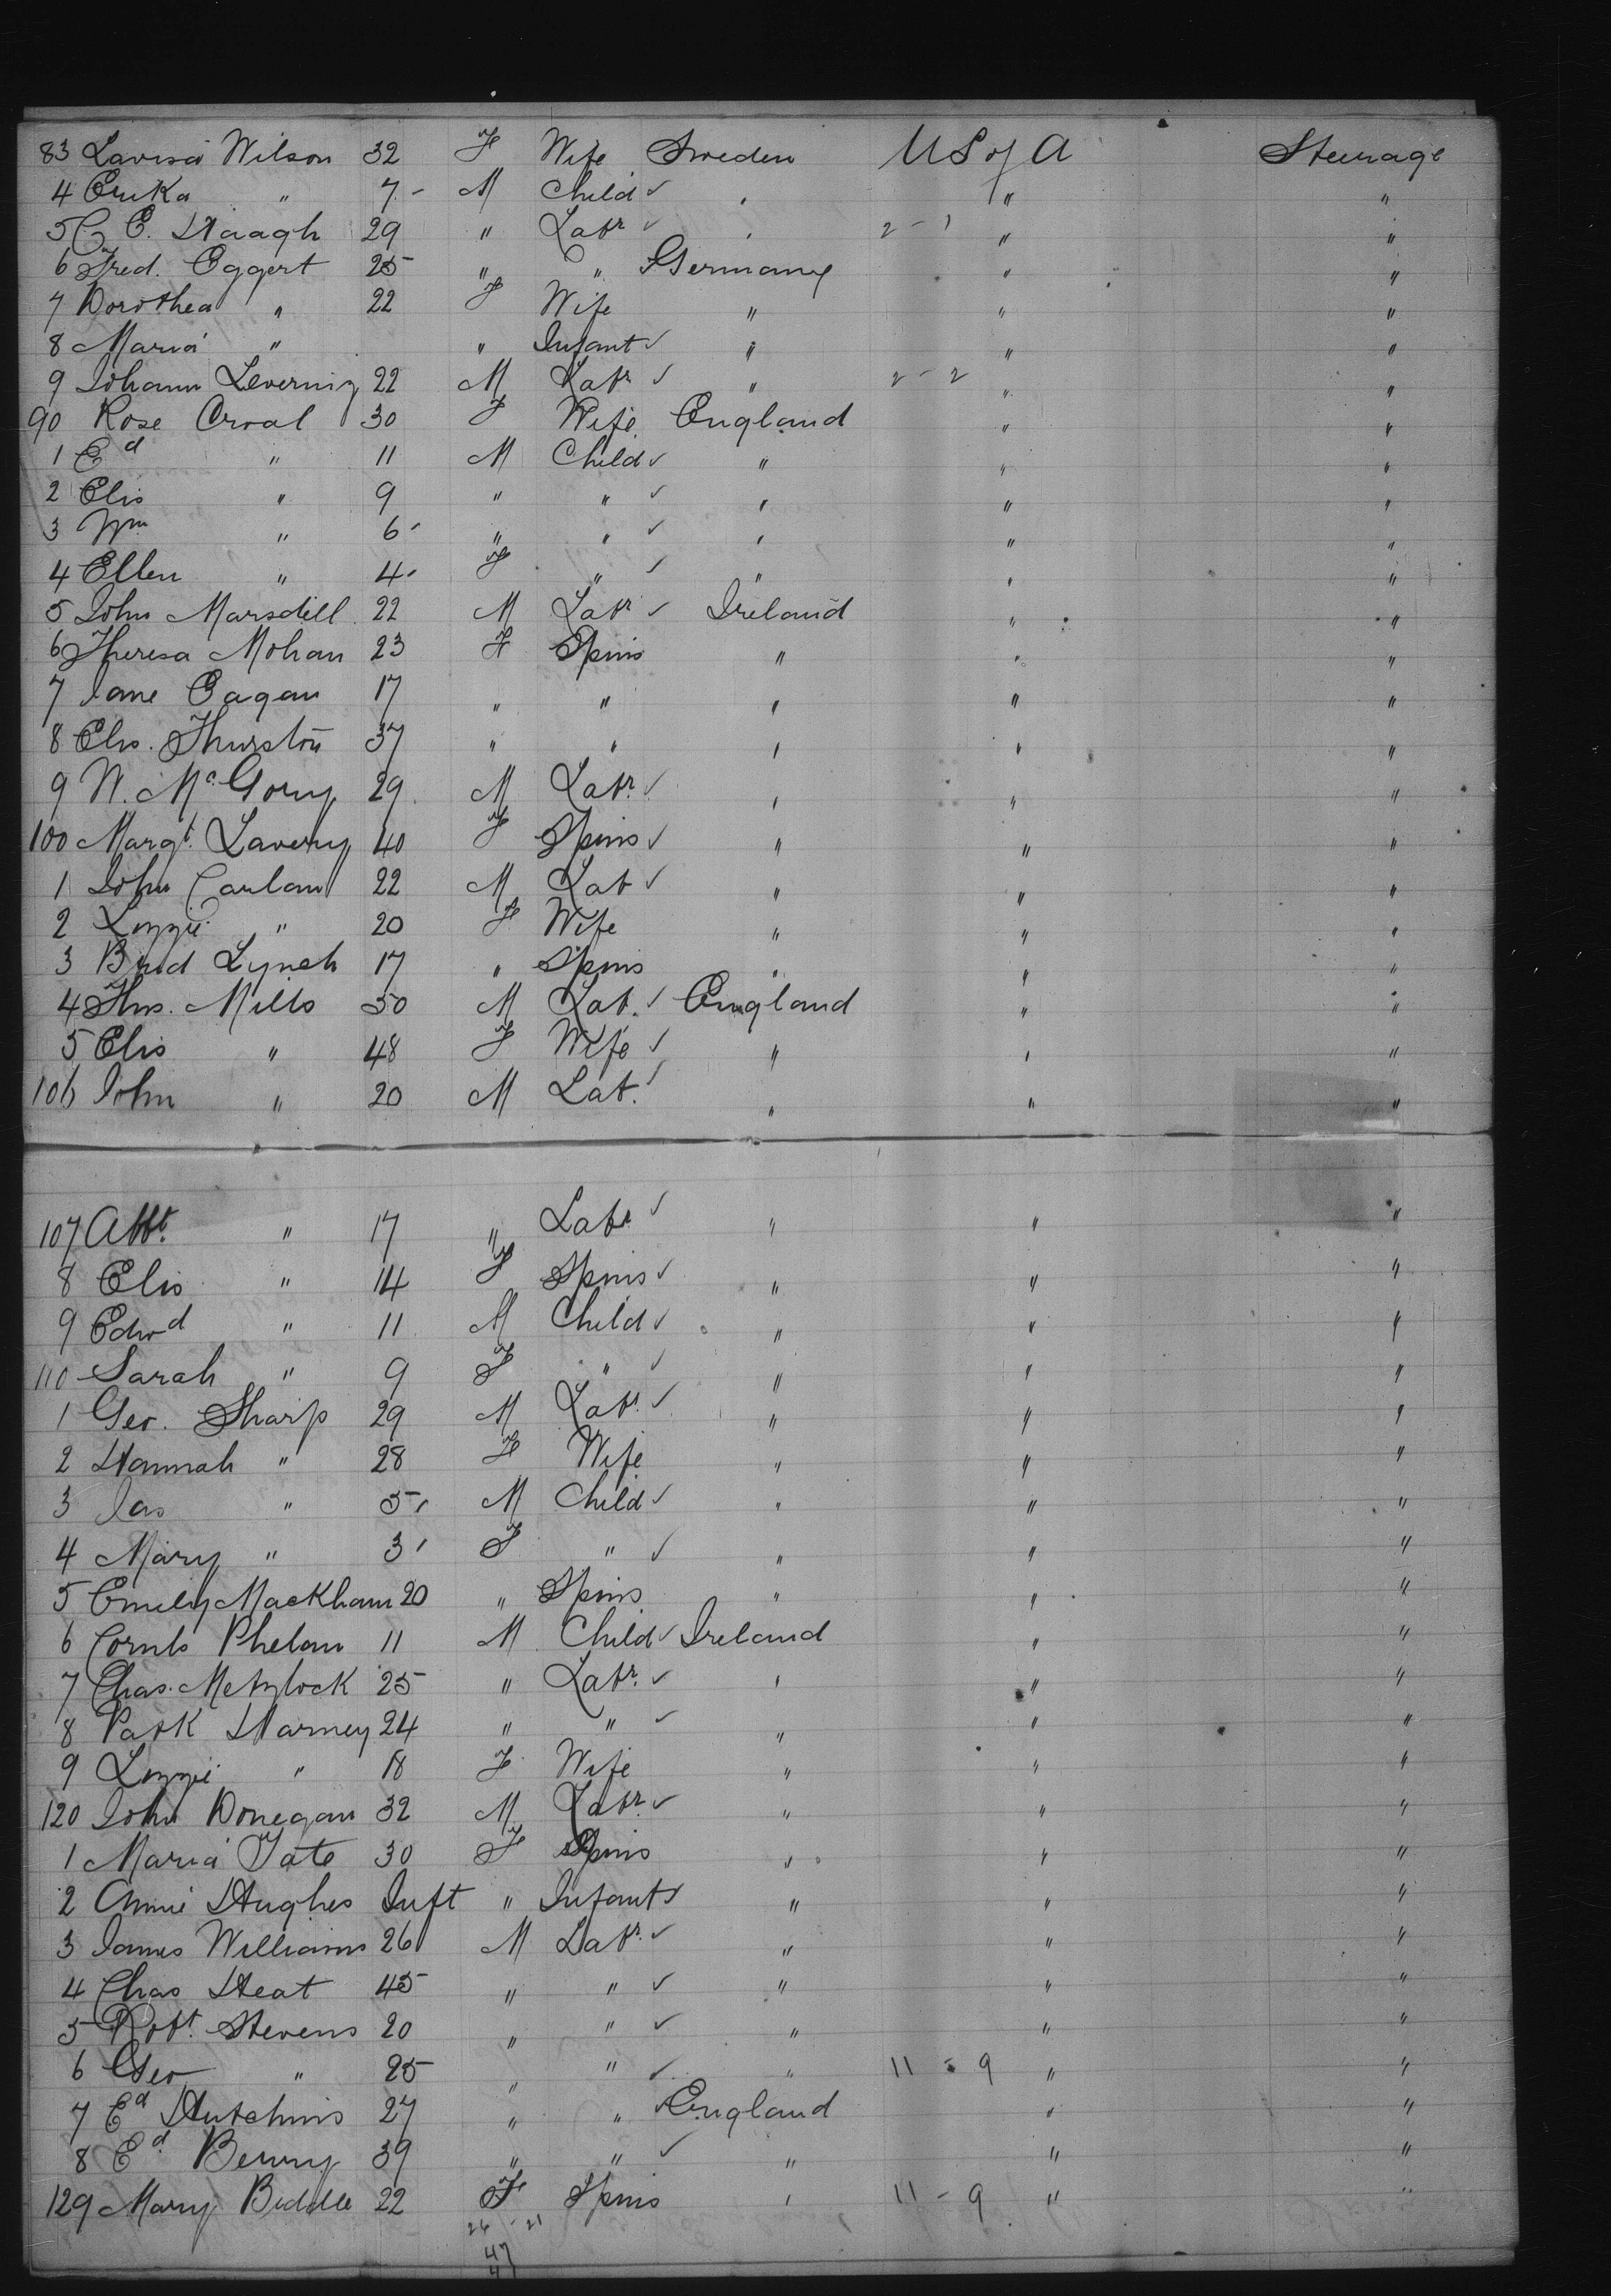 83 Lavisa Wilson 32 F Wife Sweden U S of A Steerage
4 Erika " 7 - M Child ✓ " " "
5 C E. Haagh 29 " Labr ✓ " 2 - 1 " "
6 Fred. Eggert 25 " " Germany " "
7 Dorothea " 22 F Wife " " "
8 Maria " " Infant ✓ " " "
9 Johann Leverniz 22 M Labr ✓ " 2 - 2 " "
90 Rose Orval 30 F Wife England " "
1 Ed " 11 M Child ✓ " " "
2 Elis " 9 " " ✓ " " "
3 Wm " 6 " " ✓ " " "
4 Ellen " 4 F " ✓ " " "
5 John Marsdell 22 M Labr ✓ Ireland " "
6 Theresa Mohan 23 F Spins " " "
7 Jane Eagan 17 " " " " "
8 Elis. Thurston 37 " " " " "
9 N. McGorry 29 M Labr ✓ " " "
100 Margt. Lavery 40 F Spins ✓ " " "
1 John Carlan 22 M Lab ✓ " " "
2 Lizzie " 20 F Wife " " "
3 Brid Lynch 17 " Spins " " "
4 Thos. Mills 50 M Lab. ✓ England " "
5 Elis " 48 F Wife ✓ " " "
106 John " 20 M Lab. ✓ " " "
107 Albt. " 17 " Labr ✓ " " "
8 Elis " 14 F Spins ✓ " " "
9 Edwd " 11 M Child ✓ " " "
110 Sarah " 9 F " ✓ " " "
1 Geo. Sharp 29 M Labr ✓ " " "
2 Hannah " 28 F Wife " " "
3 Jas " 5 M Child ✓ " " "
4 Mary " 3 F " ✓ " " "
5 Emily Mackham 20 " Spins " " "
6 Cornls Phelan 11 M Child ✓ Ireland " "
7 Chas. 25 " Labr. ✓ " " "
8 Patk Harney 24 " " ✓ " " "
9 Lizzie " 18 F Wife " " "
120 John Donegan 32 M Labr. ✓ " " "
1 Maria Tate 30 F Spins " " "
2 Annie Hughes Inft " Infant ✓ " " "
3 James Williams 26 M Labr. ✓ " " "
4 Chas Heat 45 " " ✓ " " "
5 Robt. Stevens 20 " " ✓ " " "
6 Geo " 25 " " ✓ " 11 - 9 " "
7 Ed Hutchins 27 " " England " "
8 Ed Berry 39 " " ✓ " " "
129 Mary Biddle 22 F Spins " 11 - 9 " "
26 - 21
47